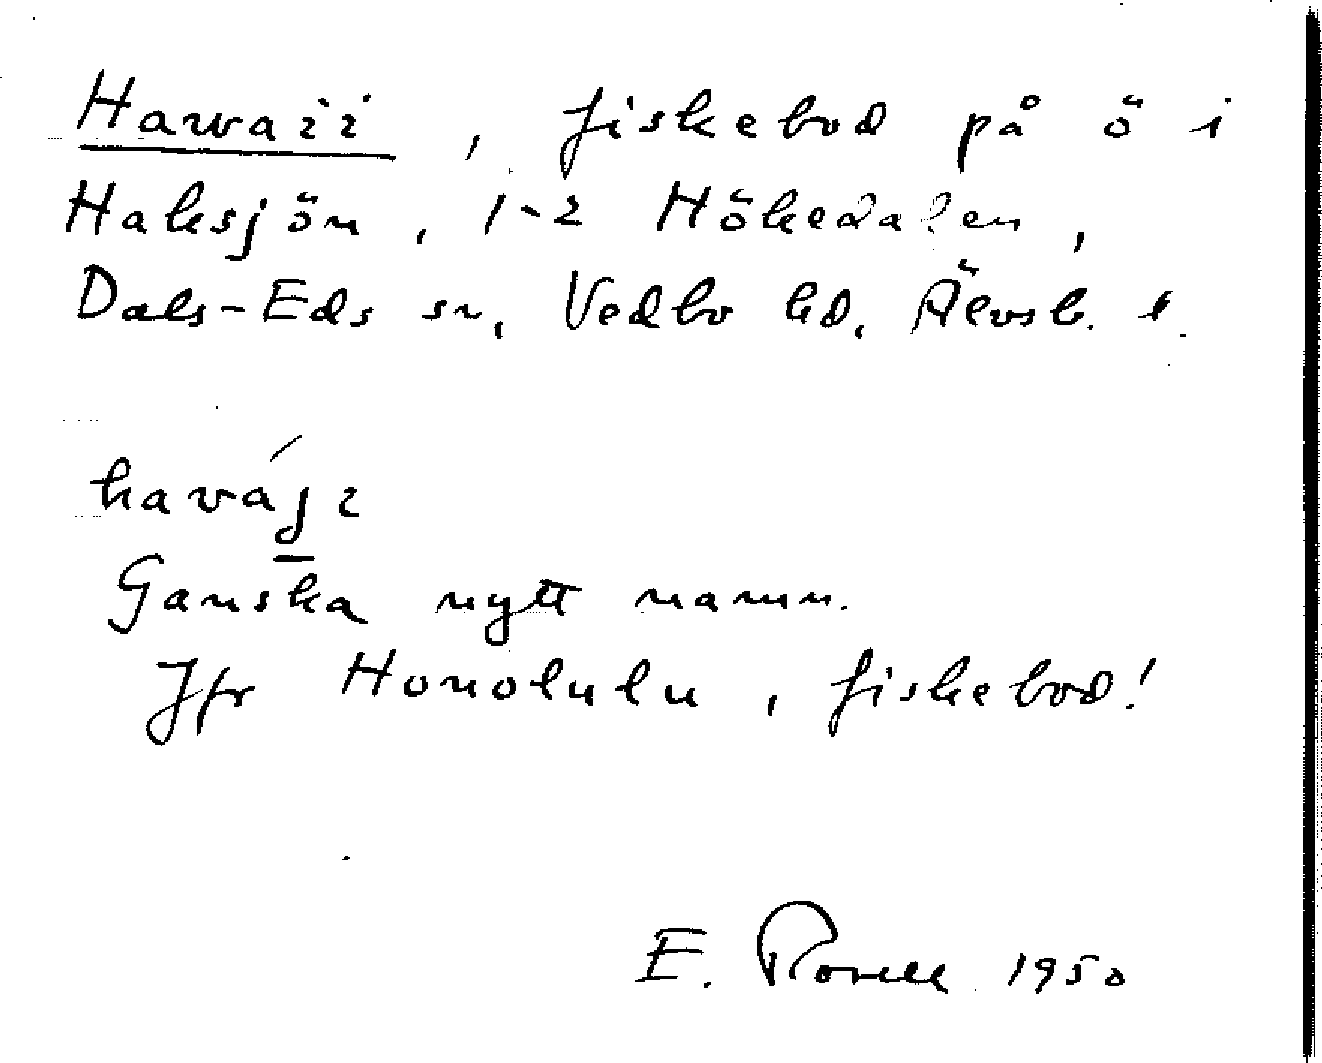 Hawaii, fiskebod på ö i
Haksjön, 1-2 Hökedalen,
Dals-Eds sn, Vedbo hd, Älvsb. l.
haváj i
Ganska nytt namn.
Jfr Honolulu, fiskebod!
E. Rosell 1950